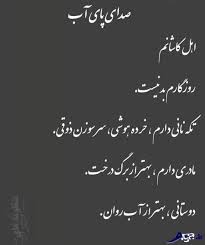 صدای پای آب
اهل کاشانم
روزگارم بد نیست.
تکه نانی دارم ، خرده هوشی، سر سوزن ذوقی.
مادری دارم ، بهتر از برگ درخت.
دوستانی ، بهتر از آب روان.